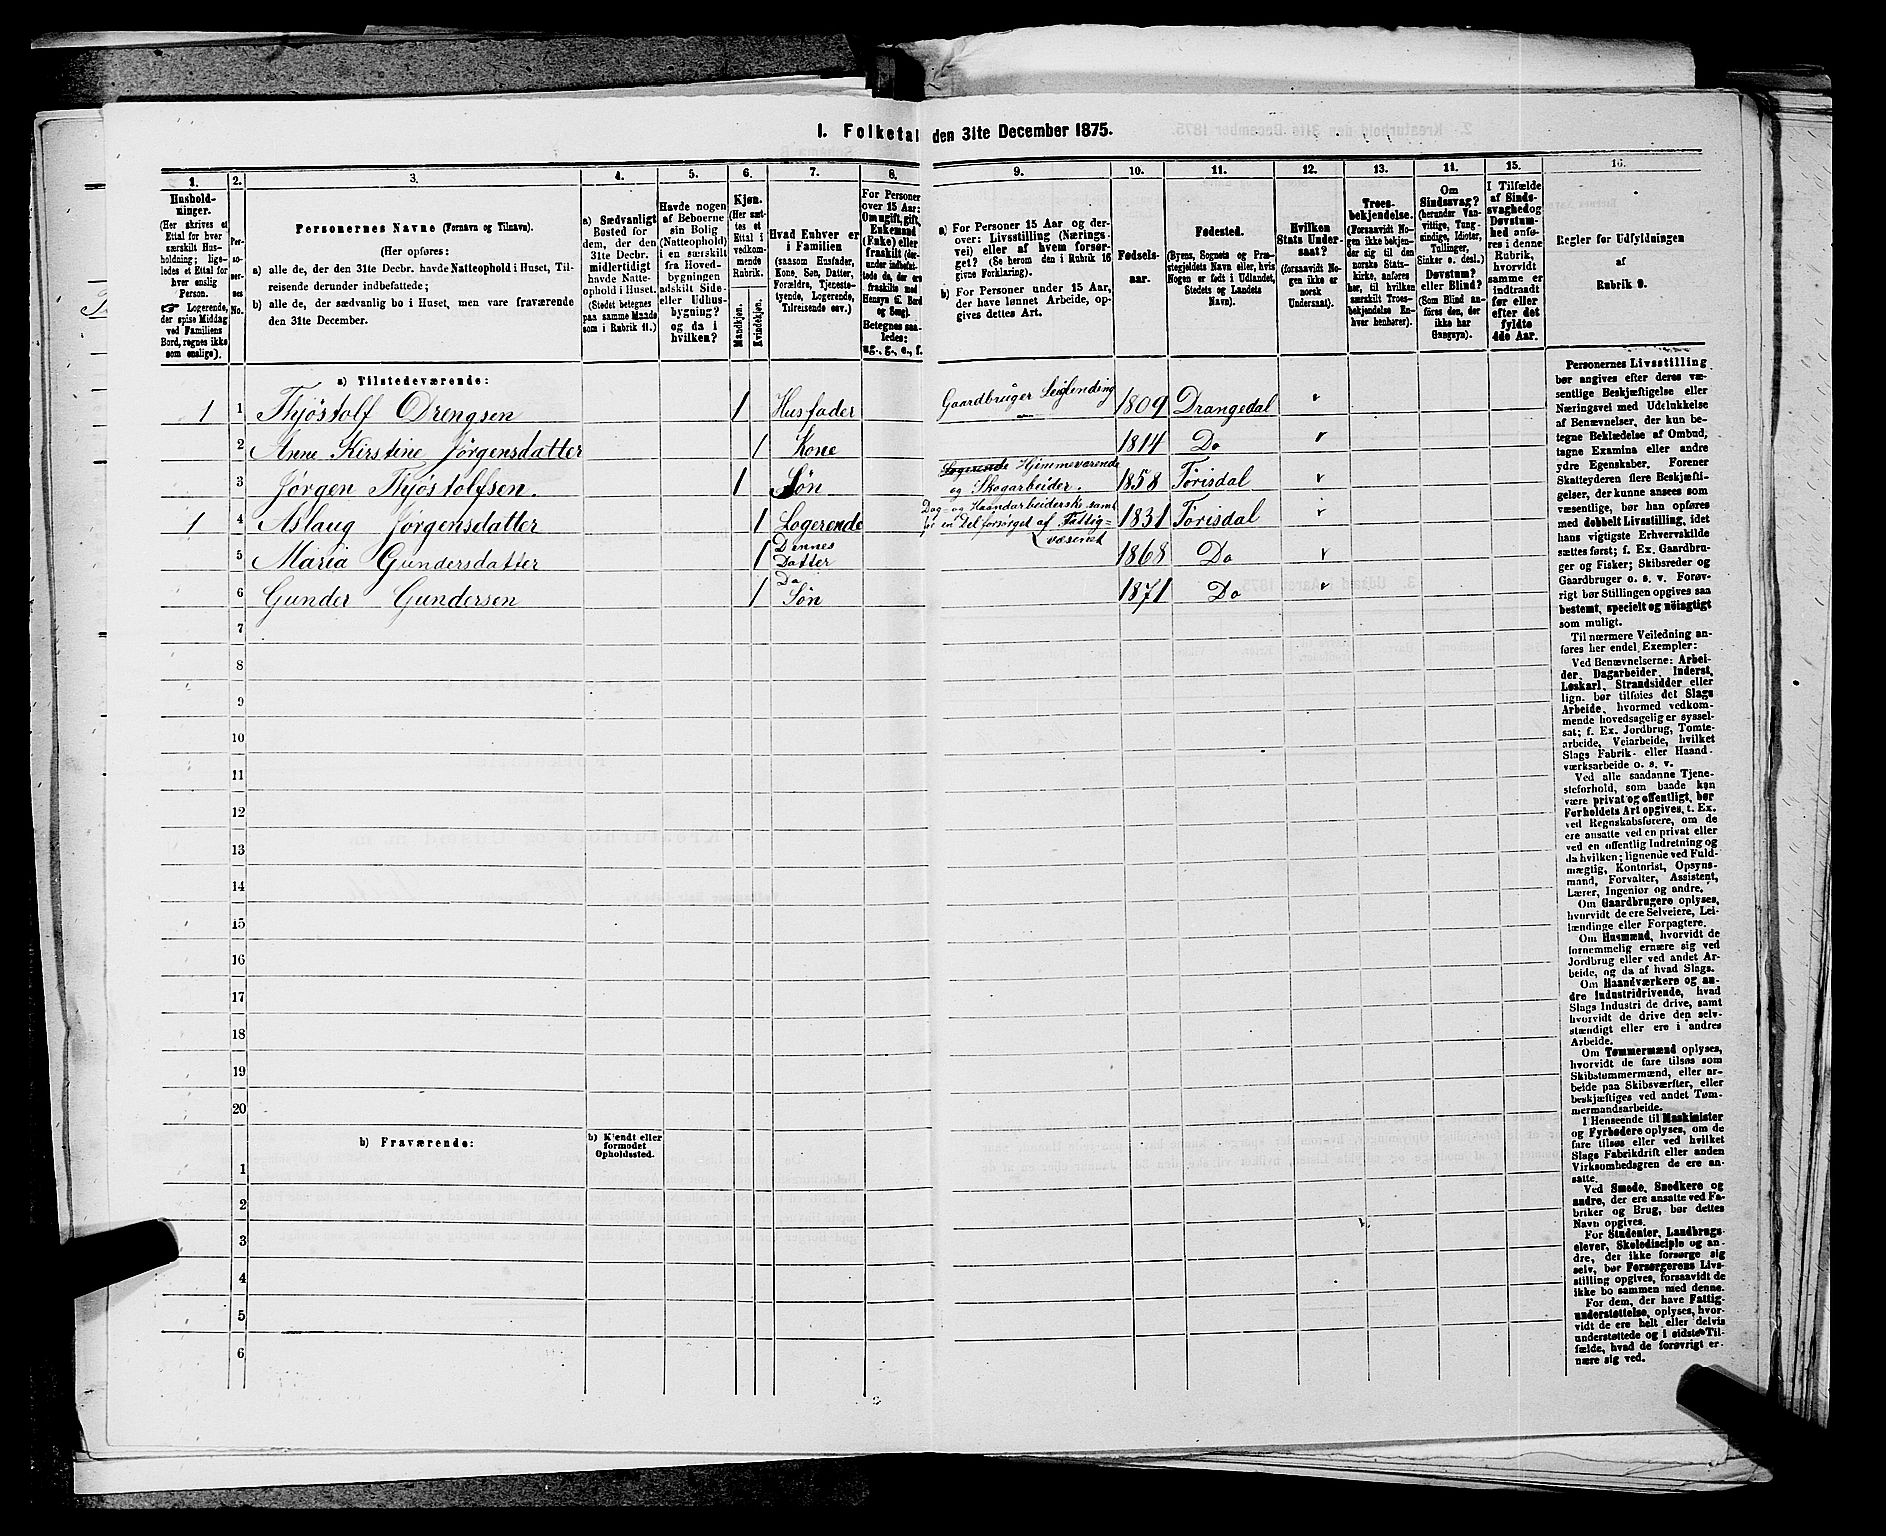 1. Folketal den 31te December 1875.
1.
Hushold-
ninger.
(Her skrives et
Ettal for hver
særskilt Hus-
holdning; lige-
ledes et Ettal for
hver enslig
Person.
Logerende,
der spise Middag
ved Familiens
Bord, regnes ikke
som enslige).
2.
Per-
so-
ner-
nes
No.
3.
Personernes Navne (Fornavn og Tilnavn).
(Her opføres:
a) alle de, der den 31te Decbr. havde Natteophold i Huset, Til-
reisende derunder indbefattede;
b) alle de, der sædvanlig bo i Huset, men vare fraværende
den 31te December.
4.
a) Sædvanligt
Bosted for
dem, der den
31te Decbr.
midlertidigt
havde Natte-
ophold i Huset.
(Stedet betegnes
paa samme Maade
som i Rubrik 11.)
5.
Havde nogen
af Beboerne
sin Bolig
(Natteophold)
i en særskilt
fra Hoved-
bygningen
adskilt Side-
eller Udhus-
bygning?
og da i
hvilken?
6.
Kjøn.
(Her sæt-
tes et
Ettal i
vedkom-
mende
Rubrik.
Mandkjøn.
Kvindekjøn.
7.
Hvad Enhver er
i Familien
(saasom Husfader,
Kone, Søn, Datter,
Forældre, Tjeneste-
tyende, Logerende,
Tilreisende osv.)
8.
For Personer
over 15 Aar:
Om ugift, gift,
Enkemand
(Enke) eller
fraskilt (der-
under indbefat-
tede de, der ere
fraskilte med
Hensyn til Bord
og Seng).
Betegnes saa-
ledes:
ug., g., e., f.
9.
a) For Personer 15 Aar og der-
over: Livsstilling (Nærings-
vei) eller af hvem forsør-
get? (Se herom den i Rubrik 16
givne Forklaring).
b) For Personer under 15 Aar,
der have lønnet Arbeide, op-
gives dettes Art.
10.
Fødsels-
aar.
11.
Fødested.
(Byens, Sognets og Præ-
stegjeldets Navn eller, hvis
Nogen er født i Udlandet,
Stedets og Landets
Navn).
12.
Hvilken
Stats Under-
saat?
(forsaavidt No-
gen ikke er
norsk
Undersaat).
13.
Troes-
bekjendelse.
(Forsaavidt No-
gen ikke bekjen-
der sig til den
norske Stats-
kirke, anføres
her, til hvilken
særskilt Troes-
bekjendelse En-
hver henhører).
14.
Om
Sindssvag?
(herunder Van-
vittige, Tung-
sindige, Idioter,
Tullinger,
Sinker o. desl.)
Døvstum?
eller Blind?
(Som Blind an-
føres den, der
ikke har
Gangsyn).
15.
I Tilfælde
af Sinds-
svaghed og
Døvstum-
hed anfø-
res i denne
Rubrik,
hvorvidt
samme er
indtraadt
før eller
efter det
fyldte
4de Aar.
16.
Regler for Udfyldningen
af
Rubrik 9.
a) Tilstedeværende:
1 1 Thjøstolf Drengsen 1 Husfader Gaardbruger Leilending 1809 Drangedal
2 Anne Kirstine Jørgensdatter 1 Kone 1814 Do
3 Jørgen Thjøstolfsen. 1 Søn Logerende Hjemmeværende
og Skogarbeider. 1858 Tørisdal
1 4 Aslaug Jørgensdatter 1 Logerende Dag- og Haandarbeiderske samt
for en Del forsørget af Fattig=
væsenet 1831 Tørisdal
5 Maria Gundersdatter 1 Dennes
Datter 1868 Do
6 Gunder Gundersen 1 Do
Søn 1871 Do
7
8
9
10
11
12
13
14
15
16
17
18
19
20
b) Fraværende:
b) Kjendt eller
formodet
Opholdssted.
1
2
3
4
5
6
Personernes Livsstilling
bør angives efter deres væ-
sentlige Beskjæftigelse eller
Næringsvei med Udelukkelse
af Benævnelser, der kun be-
tegne Beklædelse af Ombud,
tagne Examina eller andre
ydre Egenskaber. Forener
Skatteyderen flere Beskjæfti-
gelser, der kunne ansees som
væsentlige, bør han opføres
med dobbelt Livsstilling, idet
hans vigtigste Erhvervskilde
sættes først; f. Ex. Gaardbru-
ger og Fisker; Skibsreder og
Gaardbruger o. s. v. Forøv-
rigt bør Stillingen opgives saa
bestemt, specielt og nöiagtigt
som muligt.
Til nærmere Veiledning an-
føres her endel Exempler:
Ved Benævnelserne: Arbei-
der, Dagarbeider, Inderst,
Løskarl, Strandsidder eller
lign. bør tilføies det Slags
Arbeide, hvormed vedkom-
mende hovedsagelig er syssel-
sat; f. Ex. Jordbrug, Tomte-
arbeide, Veiarbeide, hvilket
Slags Fabrik- eller Haand-
værksarbeide o. s. v.
Ved alle saadanne Tjene-
steforhold, som baade kan
være privat og offentligt, bør
Forholdets Art opgives, t. Ex.
ved Regnskabsførere, om de
ere ansatte ved en privat eller
ved en offentlig Indretning og
da hvilken; lignende ved Fuld-
mægtig, Kontorist, Opsyns-
mand, Forvalter, Assistent,
Lærer, Ingeniør og andre.
Om Gaardbrugere oplyses,
hvorvidt de ere Selveiere, Lei-
lændinge eller Forpagtere.
Om Husmænd, hvorvidt de
fornemmelig ernære sig ved
Jordbrug eller ved andet Ar-
beide, og da af hvad Slags.
Om Haandværkere og an-
dre Industridrivende, hvad
Slags Industri de drive, samt
hvorvidt de drive den selv-
stændigt eller ere i andres
Arbeide.
Om Tømmermænd oplyses,
hvorvidt de fare tilsøs som
Skibstømmermænd, eller ar-
beide paa Skibsværfter, eller
beskjæftiges ved andet Tøm-
mermandsarbeide.
I Henseende til Maskinister
og Fyrbødere oplyses, om de
fare tilsøs eller ved hvilket
Slags Fabrikdrift eller anden
Virksomhedsgren de ere an-
satte.
Ved Smede, Snedkere og
andre, der ere ansatte ved Fa-
briker og Brug, bør dettes
Navn opgives.
For Studenter, Landbrugs-
elever, Skoledisciple og an-
dre, der ikke forsørge sig
selv, bør Forsørgerens Livs-
stilling opgives, forsaavidt de
ikke bo sammen med denne.
For dem, der have Fattig-
understøttelse, oplyses, hvor-
vidt de ere helt eller delvis
understøttede og i sidste Til-
fælde, hvad de forøvrigt er-
nære sig ved.